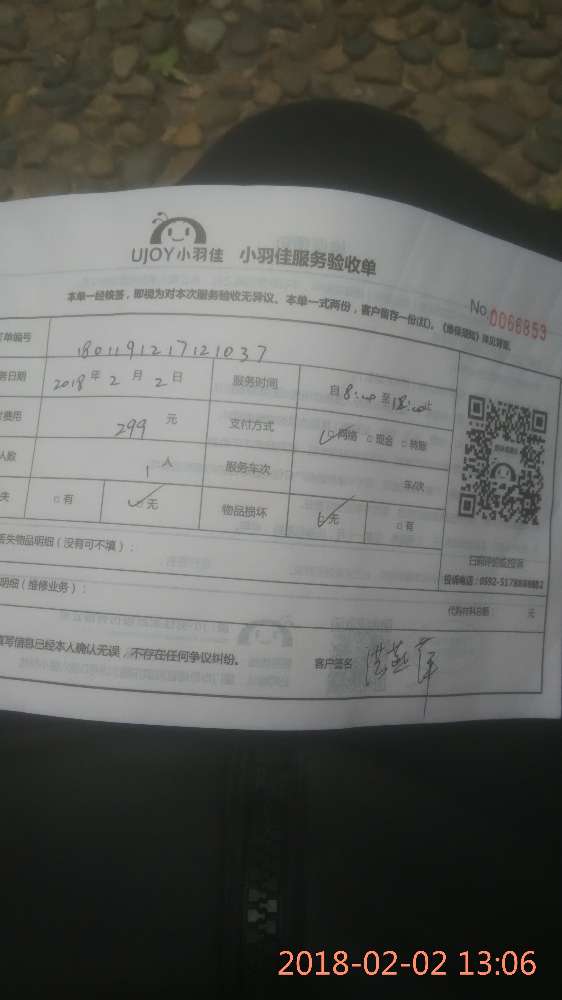 UJOY小羽佳 小羽佳服务验收单
本单一经核签，即视为对本次服务验收无异议、本单一式两份，客户留存一份(红)。《维保须知》详见背面。
No.0066853
单编号 1801191217121037
务日期 2018年2月2日 服务时间 自8:00至12:00
费用 299 元 支付方式 网络 现金 转账
人数 1人 服务车次 车/次
失 有 无 物品损坏 无 有
丢失物品明细（没有可不填）：
扫码评价或投诉
投诉电话：0592-5178
明细（维修业务）： 代购材料总额： 元
填写信息已经本人确认无误，不存在任何争议纠纷。 客户签名 洪燕萍
2018-02-02 13:06